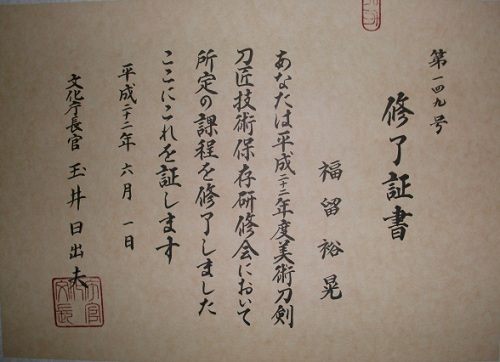 第一四九号
修了証書
福留裕晃
あなたは平成二十二年度美術刀剣
刀匠技術保存研修会において
所定の課程を修了しました
ここにこれを証します
平成二十二年六月一日
文化庁長官 玉井日出夫